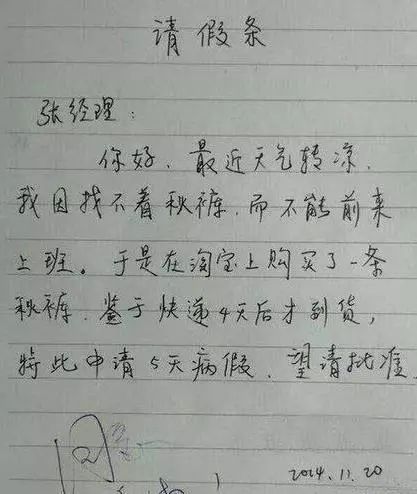 请假条
张经理:
你好,最近天气转凉,
我因找不着秋裤,而不能前来
上班。于是在淘宝上购买了一条
秋裤,鉴于快递4天后才到货,
特此申请5天病假,望请批准
2014.11.20